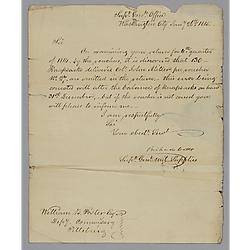 Supt. Genl. Office
Washington City Jany
Sir
On examining your return for 4th quarter
of 1814, by the vouchers, it is discovered that 130
Knapsacks delivered Col. John
are omitted on the return, this error being
corrected will alter the balance of Knapsacks on hand
31st December, but if the voucher is not correct you
will please to inform me.
I am, respectfully
Sir,
Your obedt. Servt.
Supt. Genl. Mil. Supplies
William B. Foster Esqr.
Depy. Commissary
Pittsburg